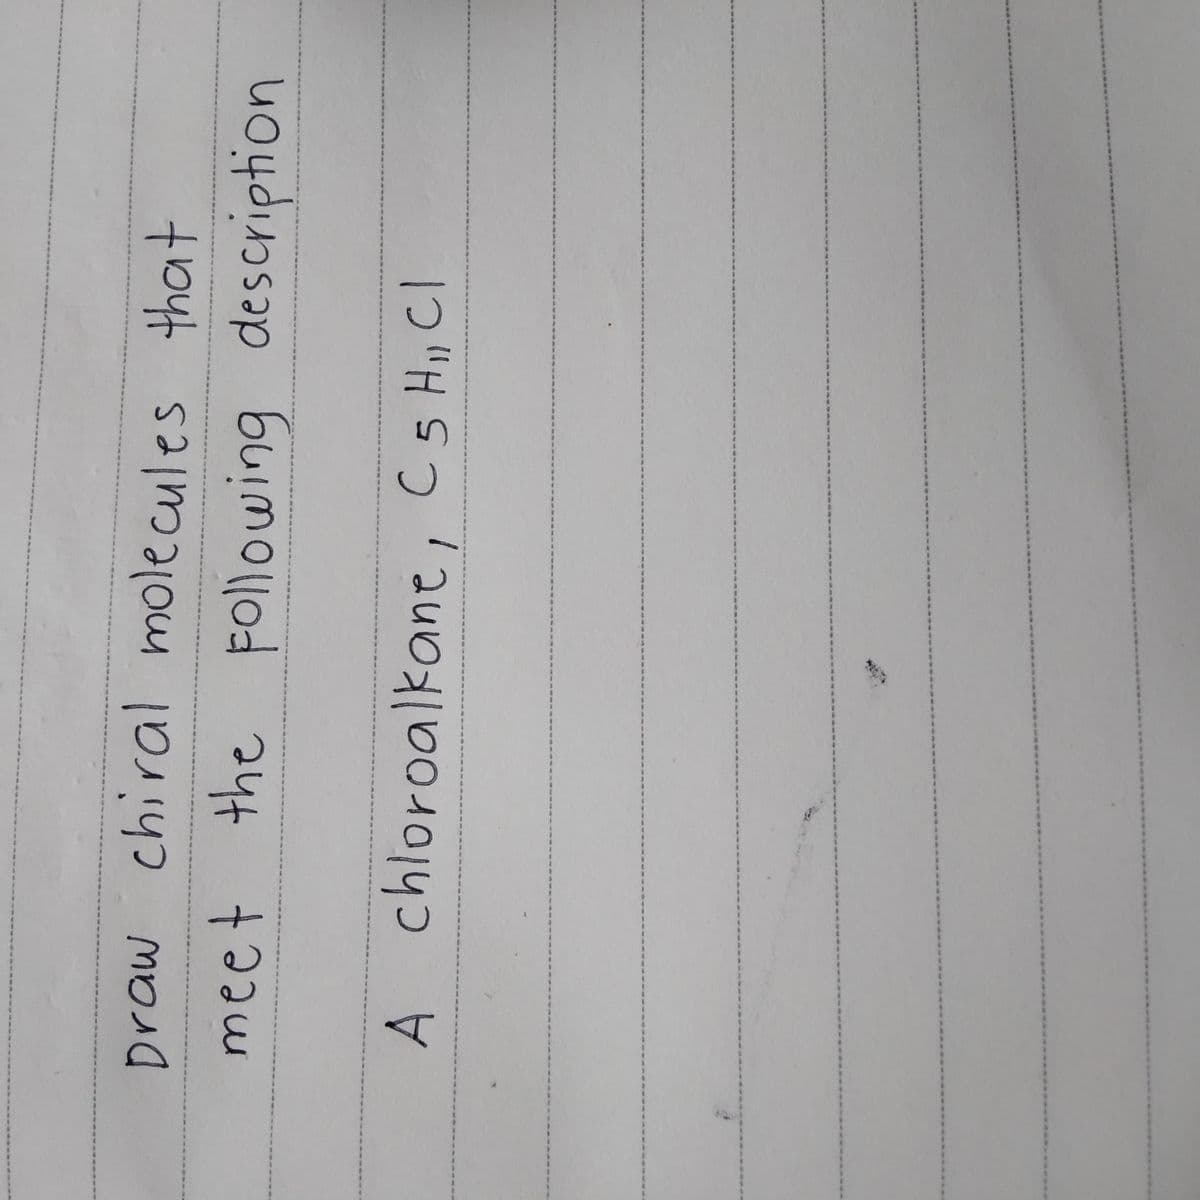 Draw chiral molecules that
meet the Following description
A chloroalkane, C5H11Cl